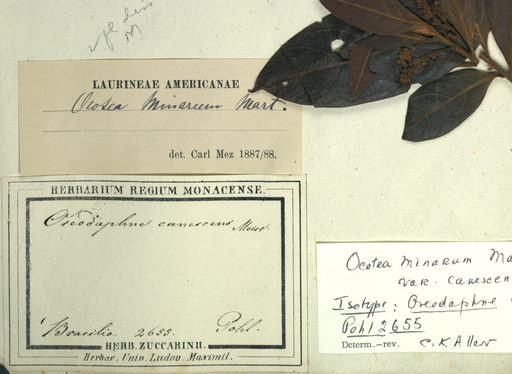 LAURINEAE AMERICANAE
Ocotea Minarum Mart.
det. Carl Mez 1887/88.
HERBARIUM REGIUM MONACENSE.
Oreodaphne canescens Meisn.
Brasilia. 2655. Pohl.
HERB. ZUCCARINII.
Herbar. Univ. Ludov. Maximil.
Ocotea minarum Ma
var. canescen
Isotype: Oreodaphne
Pohl 2655
Determ.—rev. C. K. Allen